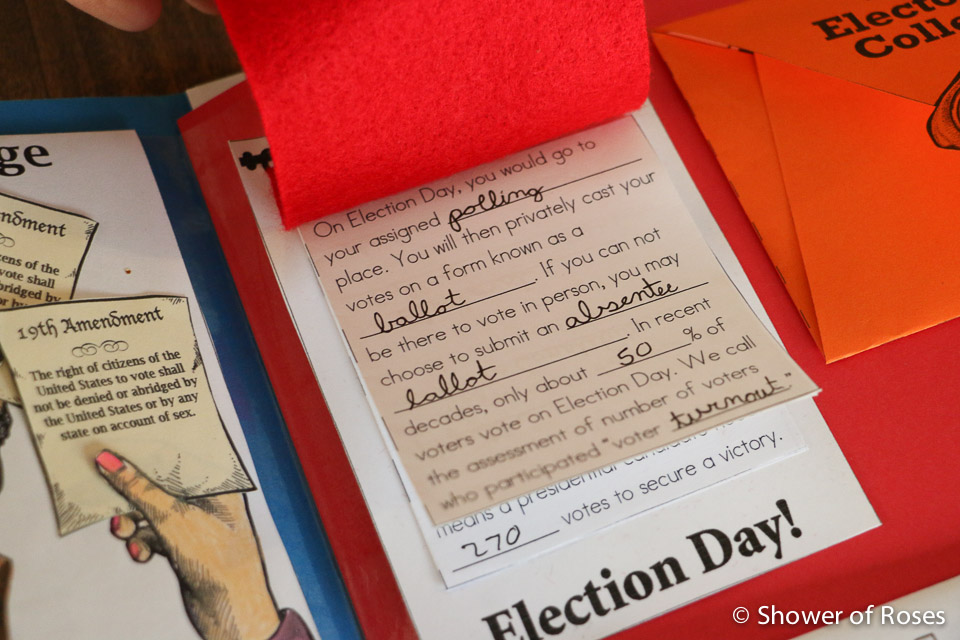 ge
19th Amendment
The right of citizens of the
United States to vote shall
not be denied or abridged by
the United States or by any
state on account of sex.
On Election Day, you would go to
your assigned polling
place. You will then privately cast your
votes on a form known as a
ballot. If you can not
be there to vote in person, you may
choose to submit an absentee
ballot. In recent
decades, only about 50 % of
voters vote on Election Day. We call
the assessment of number of voters
who participated "voter turnout."
means a presidential
270 votes to secure a victory.
Election Day!
© Shower of Roses